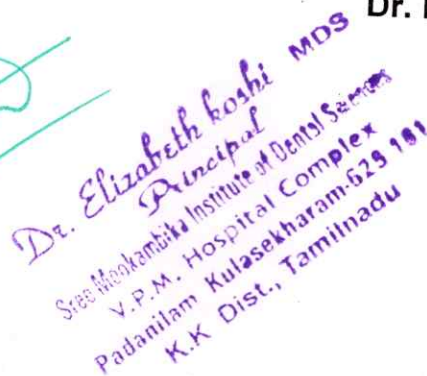 Dr.
Dr. Elizabeth koshi MDS
Principal
Sree Mookambika Institute of Dental Sciences
V.P.M. Hospital Complex
Padanilam Kulasekharam-629 161
K.K Dist., Tamilnadu